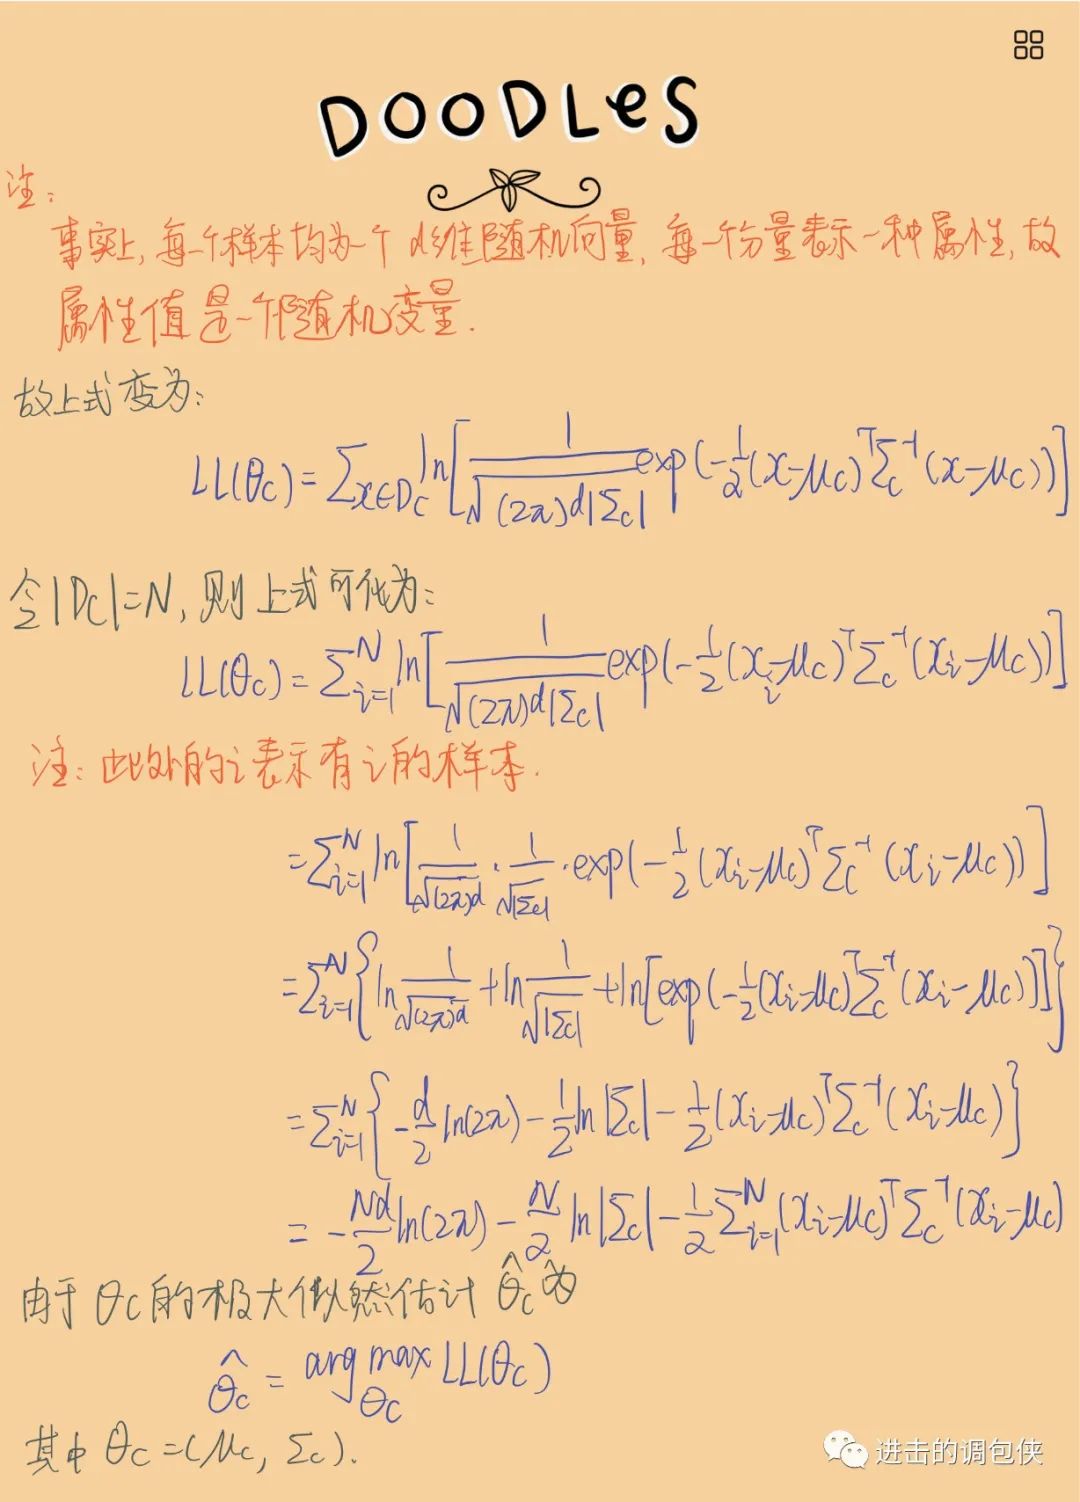 DOODLeS
注:
事实上, 每一个样本均为一个 d维随机向量, 每一个分量表示一种属性, 故
属性值是一个随机变量.
故上式变为:
LL(θc) = ∑x∈Dc ln[1/√((2π)^d|Σc|) exp(-1/2(x-μc)^T Σc^-1 (x-μc))]
令|Dc|=N, 则上式可化为:
LL(θc) = ∑_{i=1}^N ln[1/√((2π)^d|Σc|) exp(-1/2(xi-μc)^T Σc^-1 (xi-μc))]
注: 此处的i表示有i的样本.
= ∑_{i=1}^N ln[1/√((2π)^d) · 1/√|Σc| · exp(-1/2(xi-μc)^T Σc^-1 (xi-μc))]
= ∑_{i=1}^N {ln 1/√((2π)^d) + ln 1/√|Σc| + ln[exp(-1/2(xi-μc)^T Σc^-1 (xi-μc))]}
= ∑_{i=1}^N {-d/2 ln(2π) - 1/2 ln|Σc| - 1/2(xi-μc)^T Σc^-1 (xi-μc)}
= -Nd/2 ln(2π) - N/2 ln|Σc| - 1/2 ∑_{i=1}^N (xi-μc)^T Σc^-1 (xi-μc)
由于 θc 的极大似然估计 θ̂c 为
θ̂c = arg max_{θc} LL(θc)
其中 θc = (μc, Σc).
进击的调包侠